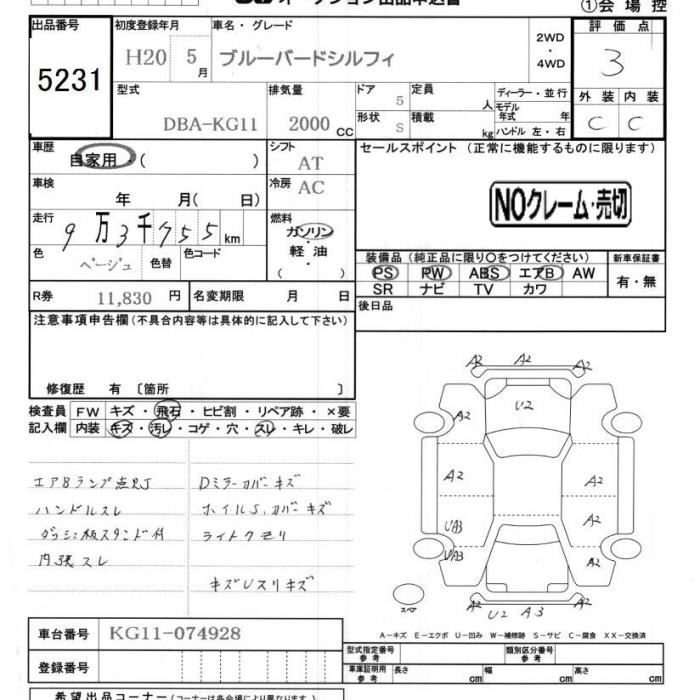 オークション出品申込書
①会場控
出品番号
5231
初度登録年月
H20 5月
車名・グレード
ブルーバードシルフィ
2WD
・
4WD
評価点
3
型式
DBA-KG11
排気量
2000 CC
ドア
5
定員
人
ディーラー・並行
モデル年式 年
形状
S
積載
kg
ハンドル 左・右
外装
内装
C
C
車歴
自家用・( )
シフト
AT
セールスポイント (正常に機能するものに限ります)
車検
年 月( 日)
冷房
AC
NOクレーム・売切
走行
9万3千755km
燃料
ガソリン
・
軽油
( )
色
ベージュ
色替
色コード
装備品 (純正品に限り○をつけてください)
新車保証書
PS PW ABS エアB AW
SR ナビ TV カワ
有・無
R券
11,830 円
名変期限 月 日
後日品
注意事項申告欄 (不具合内容等は具体的に記入して下さい)
修復歴 有 〔箇所 〕
検査員記入欄
FW キズ・飛石・ヒビ割・リペア跡・×要
内装 キズ・汚レ・コゲ・穴・スレ・キレ・破レ
エアBランプ点灯
Dミラーカバーキズ
ハンドルスレ
ホイルS.カバーキズ
ダッシュ板スタンド付
ライトクモリ
内張スレ
キズUスリキズ
A2 A2 A2
U2
A2
A2 A2
A2
UA3
UA3 A2
スペア
A2 A2
U2 A3
A-キズ E-エクボ U-凹み W-補修跡 S-サビ C-腐食 XX-交換済
車台番号
KG11-074928
型式指定番号 参考
類別区分番号 参考
登録番号
車庫証明用 参考
長さ cm
幅 cm
高さ cm
希望出品コーナー(コーナーは各会場により異なります)